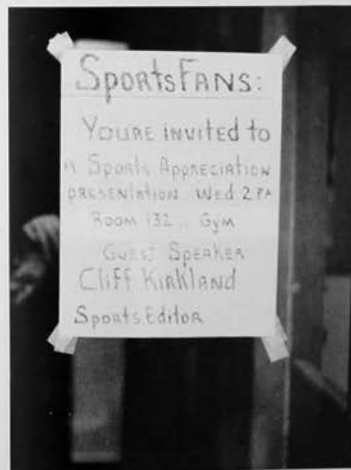 SportsFans:
Youre invited to
A Sports Appreciation
presentation.. Wed 2PM
Room 132.. Gym
Guest Speaker
Cliff Kirkland
Sports Editor